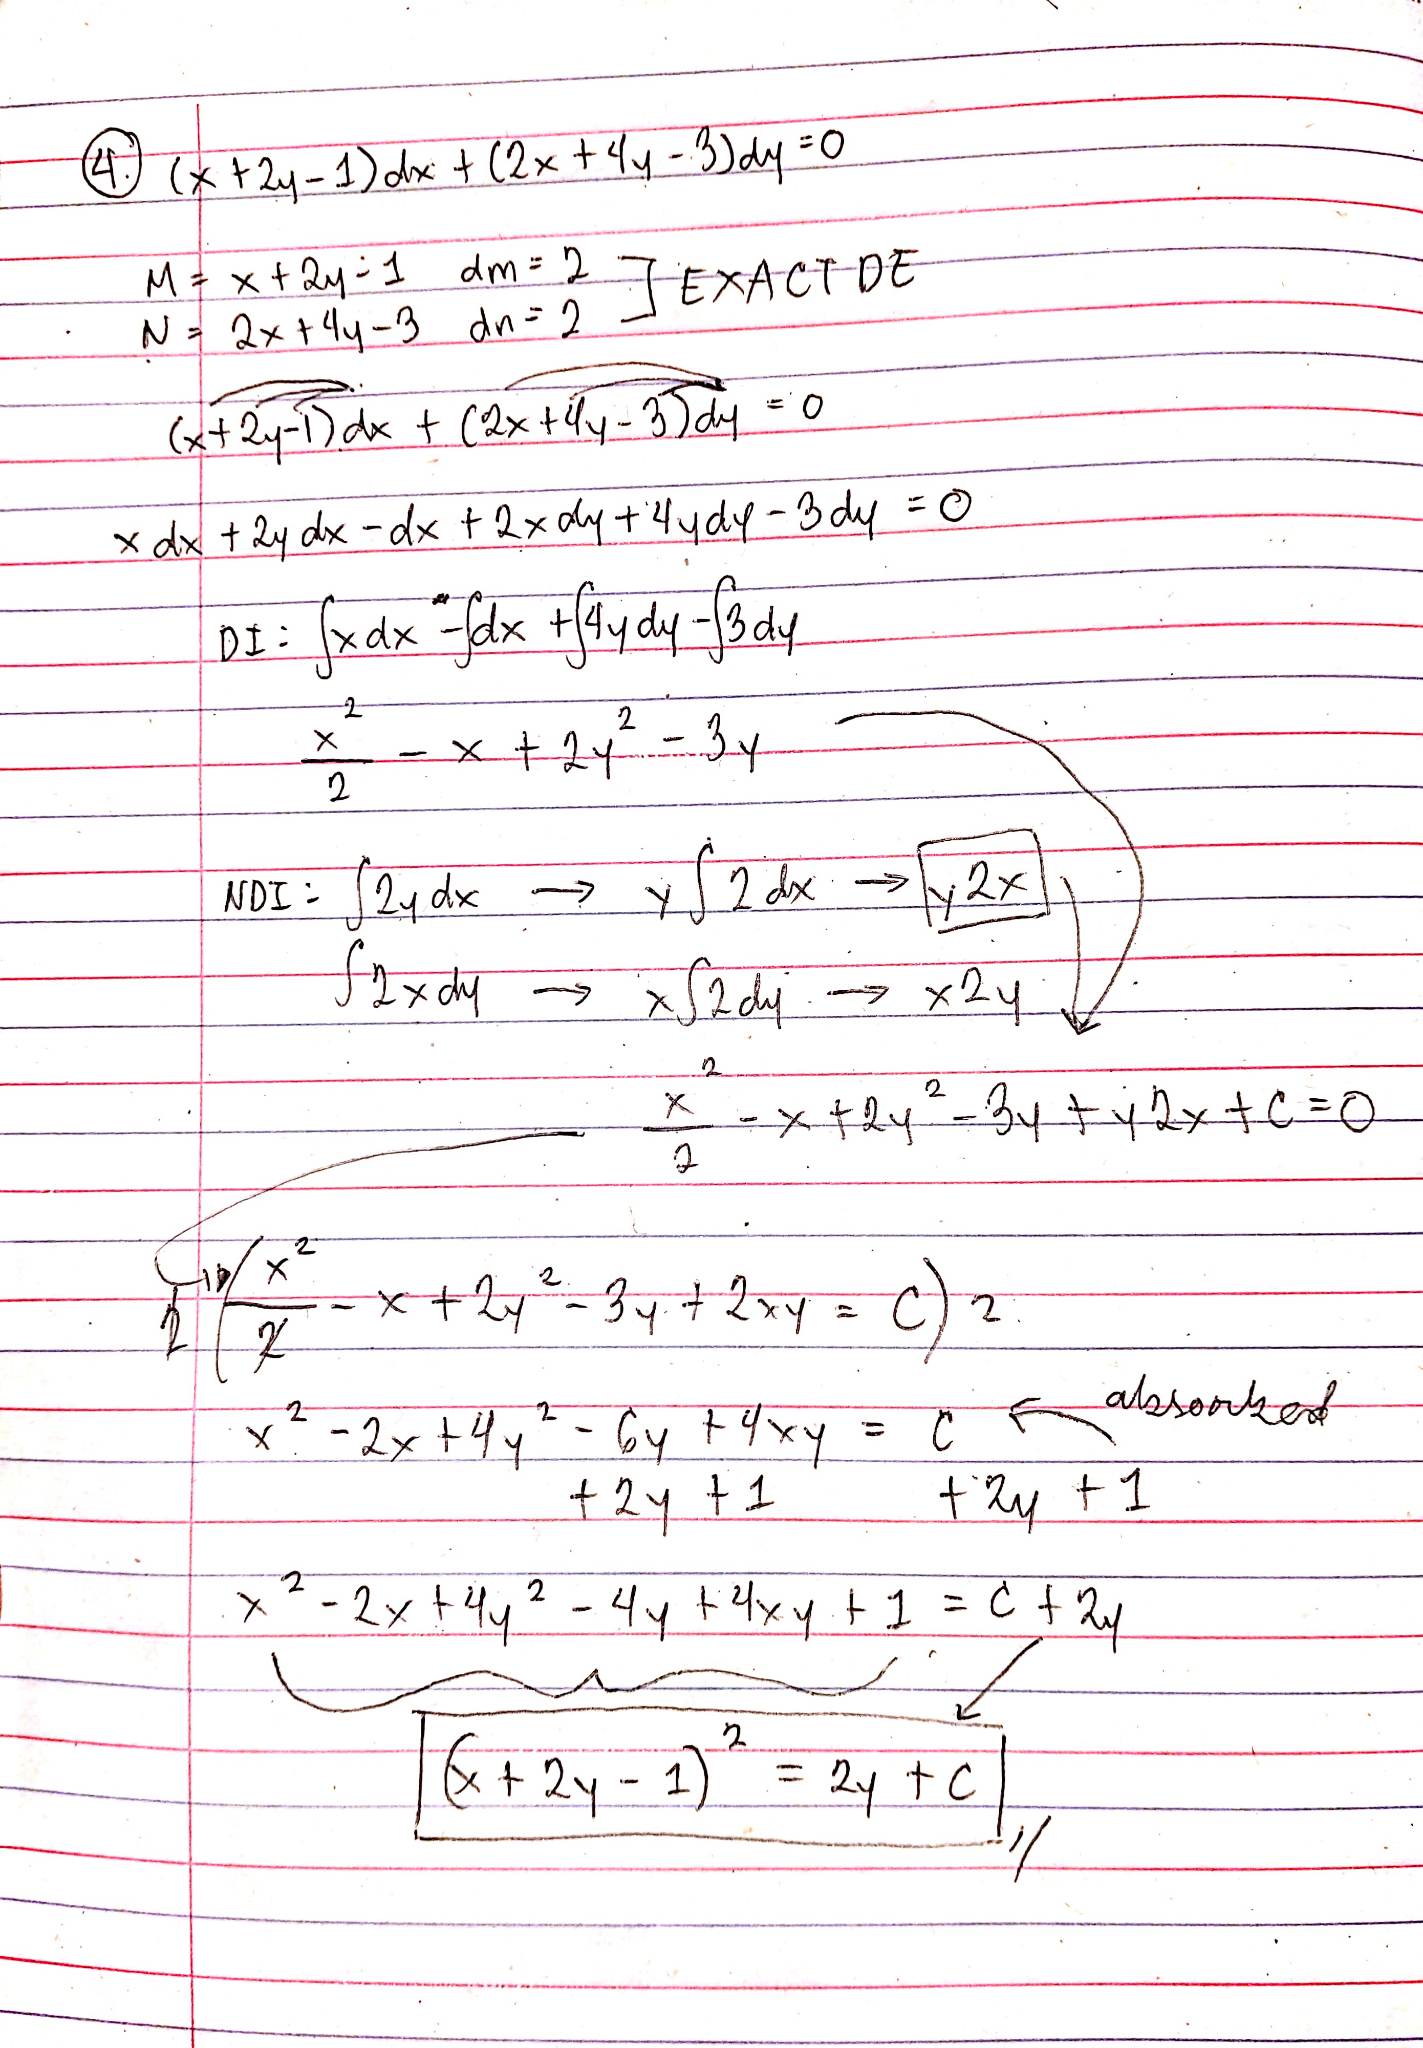 4. (x + 2y - 1) dx + (2x + 4y - 3) dy = 0
M = x + 2y - 1 dm = 2
N = 2x + 4y - 3 dn = 2 ] EXACT DE
(x + 2y - 1) dx + (2x + 4y - 3) dy = 0
x dx + 2y dx - dx + 2x dy + 4y dy - 3 dy = 0
DI: ∫x dx - ∫dx + ∫4y dy - ∫3 dy
x²/2 - x + 2y² - 3y
NDI: ∫2y dx → y∫2 dx → y2x
∫2x dy → x∫2 dy → x2y
x²/2 - x + 2y² - 3y + y2x + C = 0
2 (x²/2 - x + 2y² - 3y + 2xy = C) 2
x² - 2x + 4y² - 6y + 4xy = C ← absorbed
+ 2y + 1 + 2y + 1
x² - 2x + 4y² - 4y + 4xy + 1 = C + 2y
(x + 2y - 1)² = 2y + C //